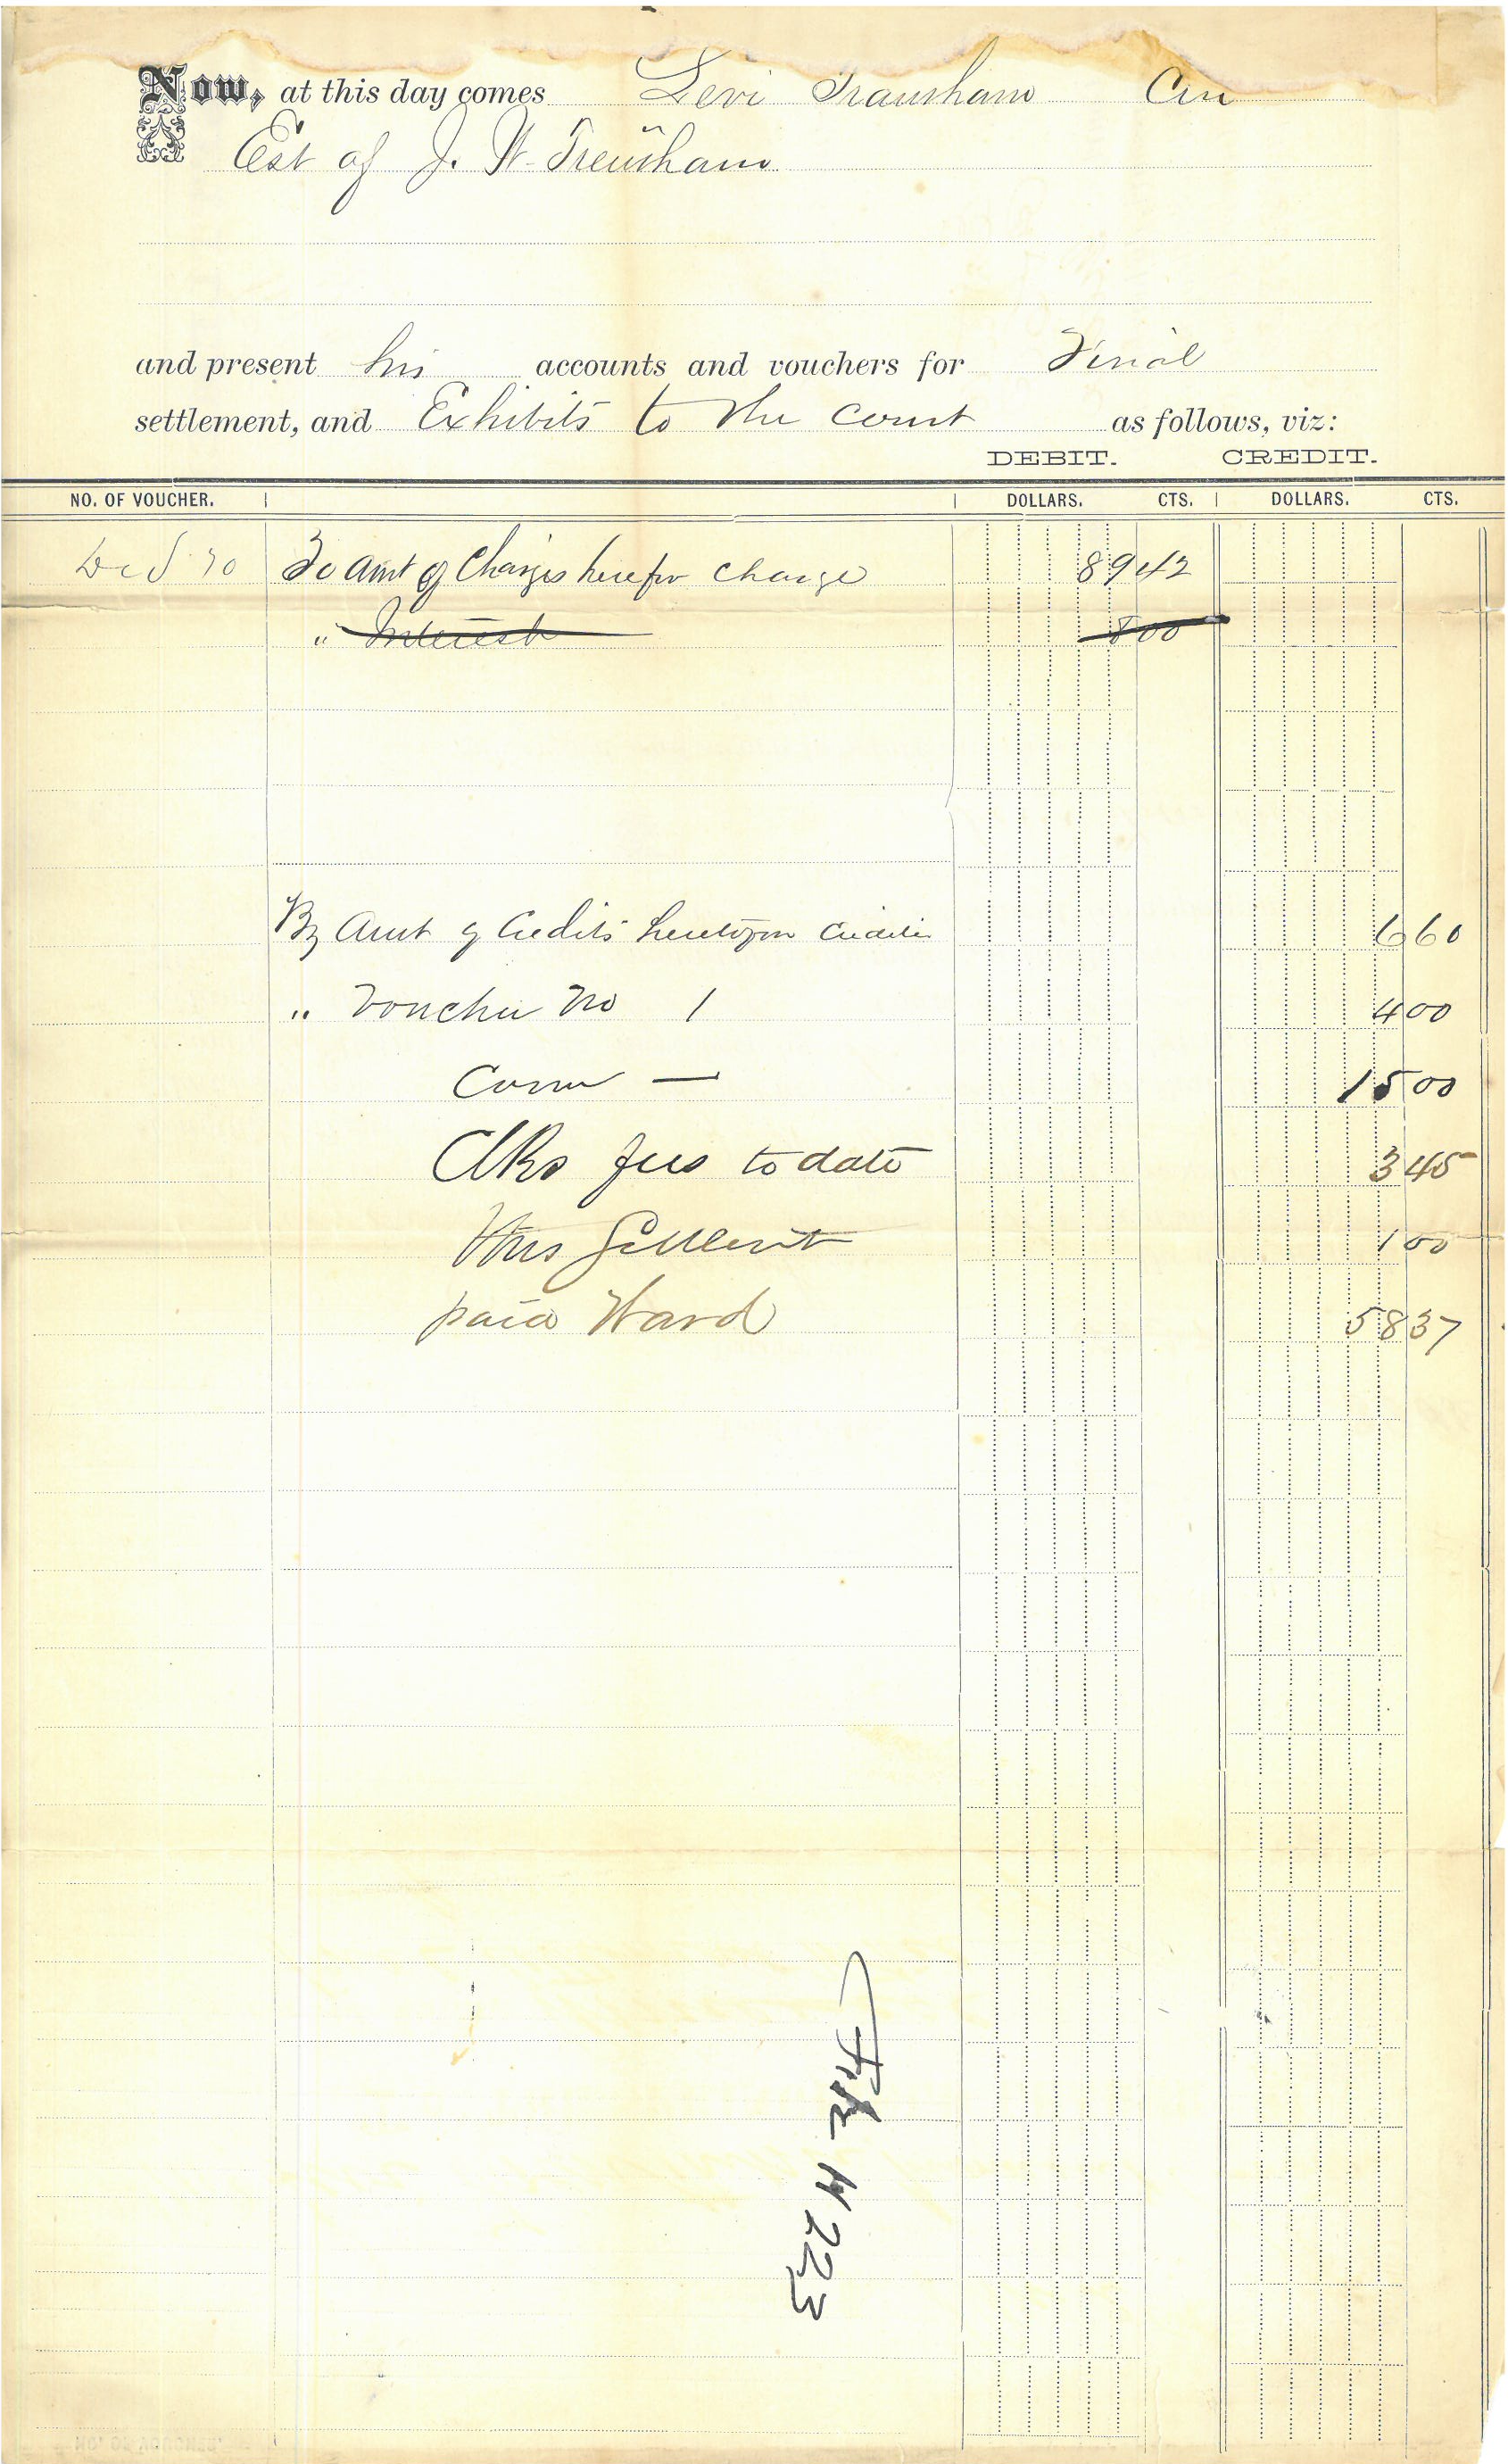 Now, at this day comes Levi Trausham Cur
Est of J. W. Treusham
and present his accounts and vouchers for Final
settlement, and Exhibits to the court as follows, viz:
DEBIT. CREDIT.
NO. OF VOUCHER. DOLLARS. CTS. DOLLARS. CTS.
To Amt of Charges herefor charge 89 42
" Interest 8 00
By Amt of Credits heretofore 6 60
" Voucher No 1 4 00
Com — 15 00
Clks fees to date 3 45
This Settlemt 1 00
paid Ward 58 37
File # 223